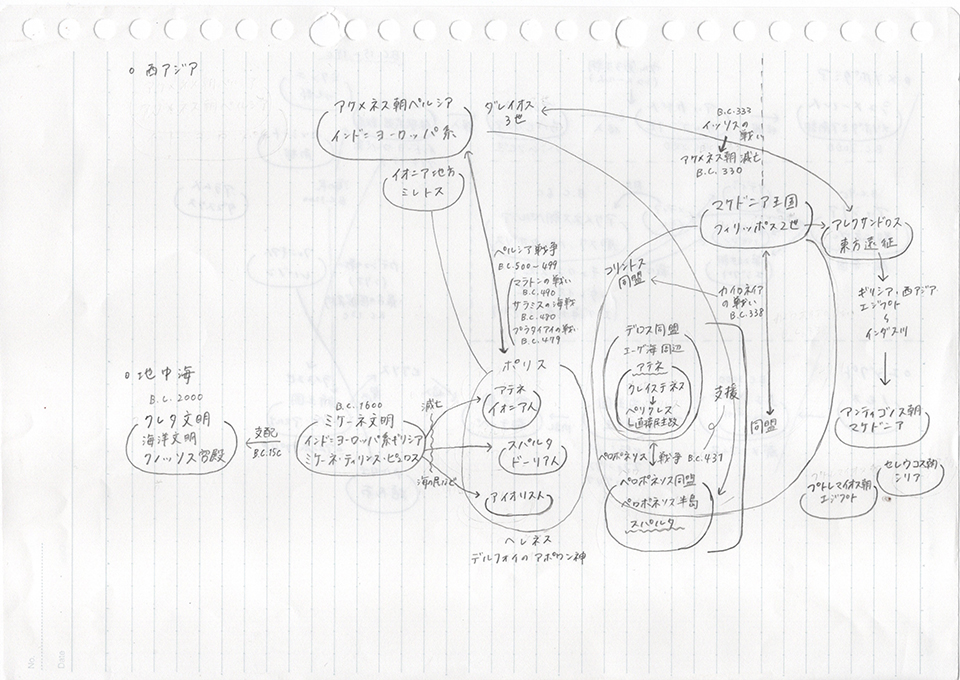 ○ 西アジア
アケメネス朝ペルシア
インド=ヨーロッパ系
イオニア地方
ミレトス
ダレイオス
3世
B.C.333
イッソスの
戦い
アケメネス朝 滅亡
B.C. 330
マケドニア王国
フィリッポス2世
アレクサンドロス
東方遠征
ギリシア・西アジア
エジプト
インダス川
アンティゴノス朝
マケドニア
セレウコス朝
シリア
プトレマイオス朝
エジプト
ペルシア戦争
B.C.500-499
マラトンの戦い
B.C.490
サラミスの海戦
B.C.480
プラタイアイの戦い
B.C.479
コリントス
同盟
カイロネイア
の戦い
B.C.338
同盟
デロス同盟
エーゲ海周辺
アテネ
クレイステネス
ペリクレス
直接民主政
支援
ペロポネソス戦争 B.C.431
ペロポネソス同盟
ペロポネソス半島
スパルタ
○ 地中海
B.C. 2000
クレタ文明
海洋文明
クノッソス宮殿
支配
B.C.15C
B.C. 1600
ミケーネ文明
インド=ヨーロッパ系ギリシア
ミケーネ・ティリンス・ピュロス
滅亡
海の民など
ポリス
アテネ
イオニア人
スパルタ
ドーリア人
アイオリス人
ヘレネス
デルフォイのアポロン神
No.
Date